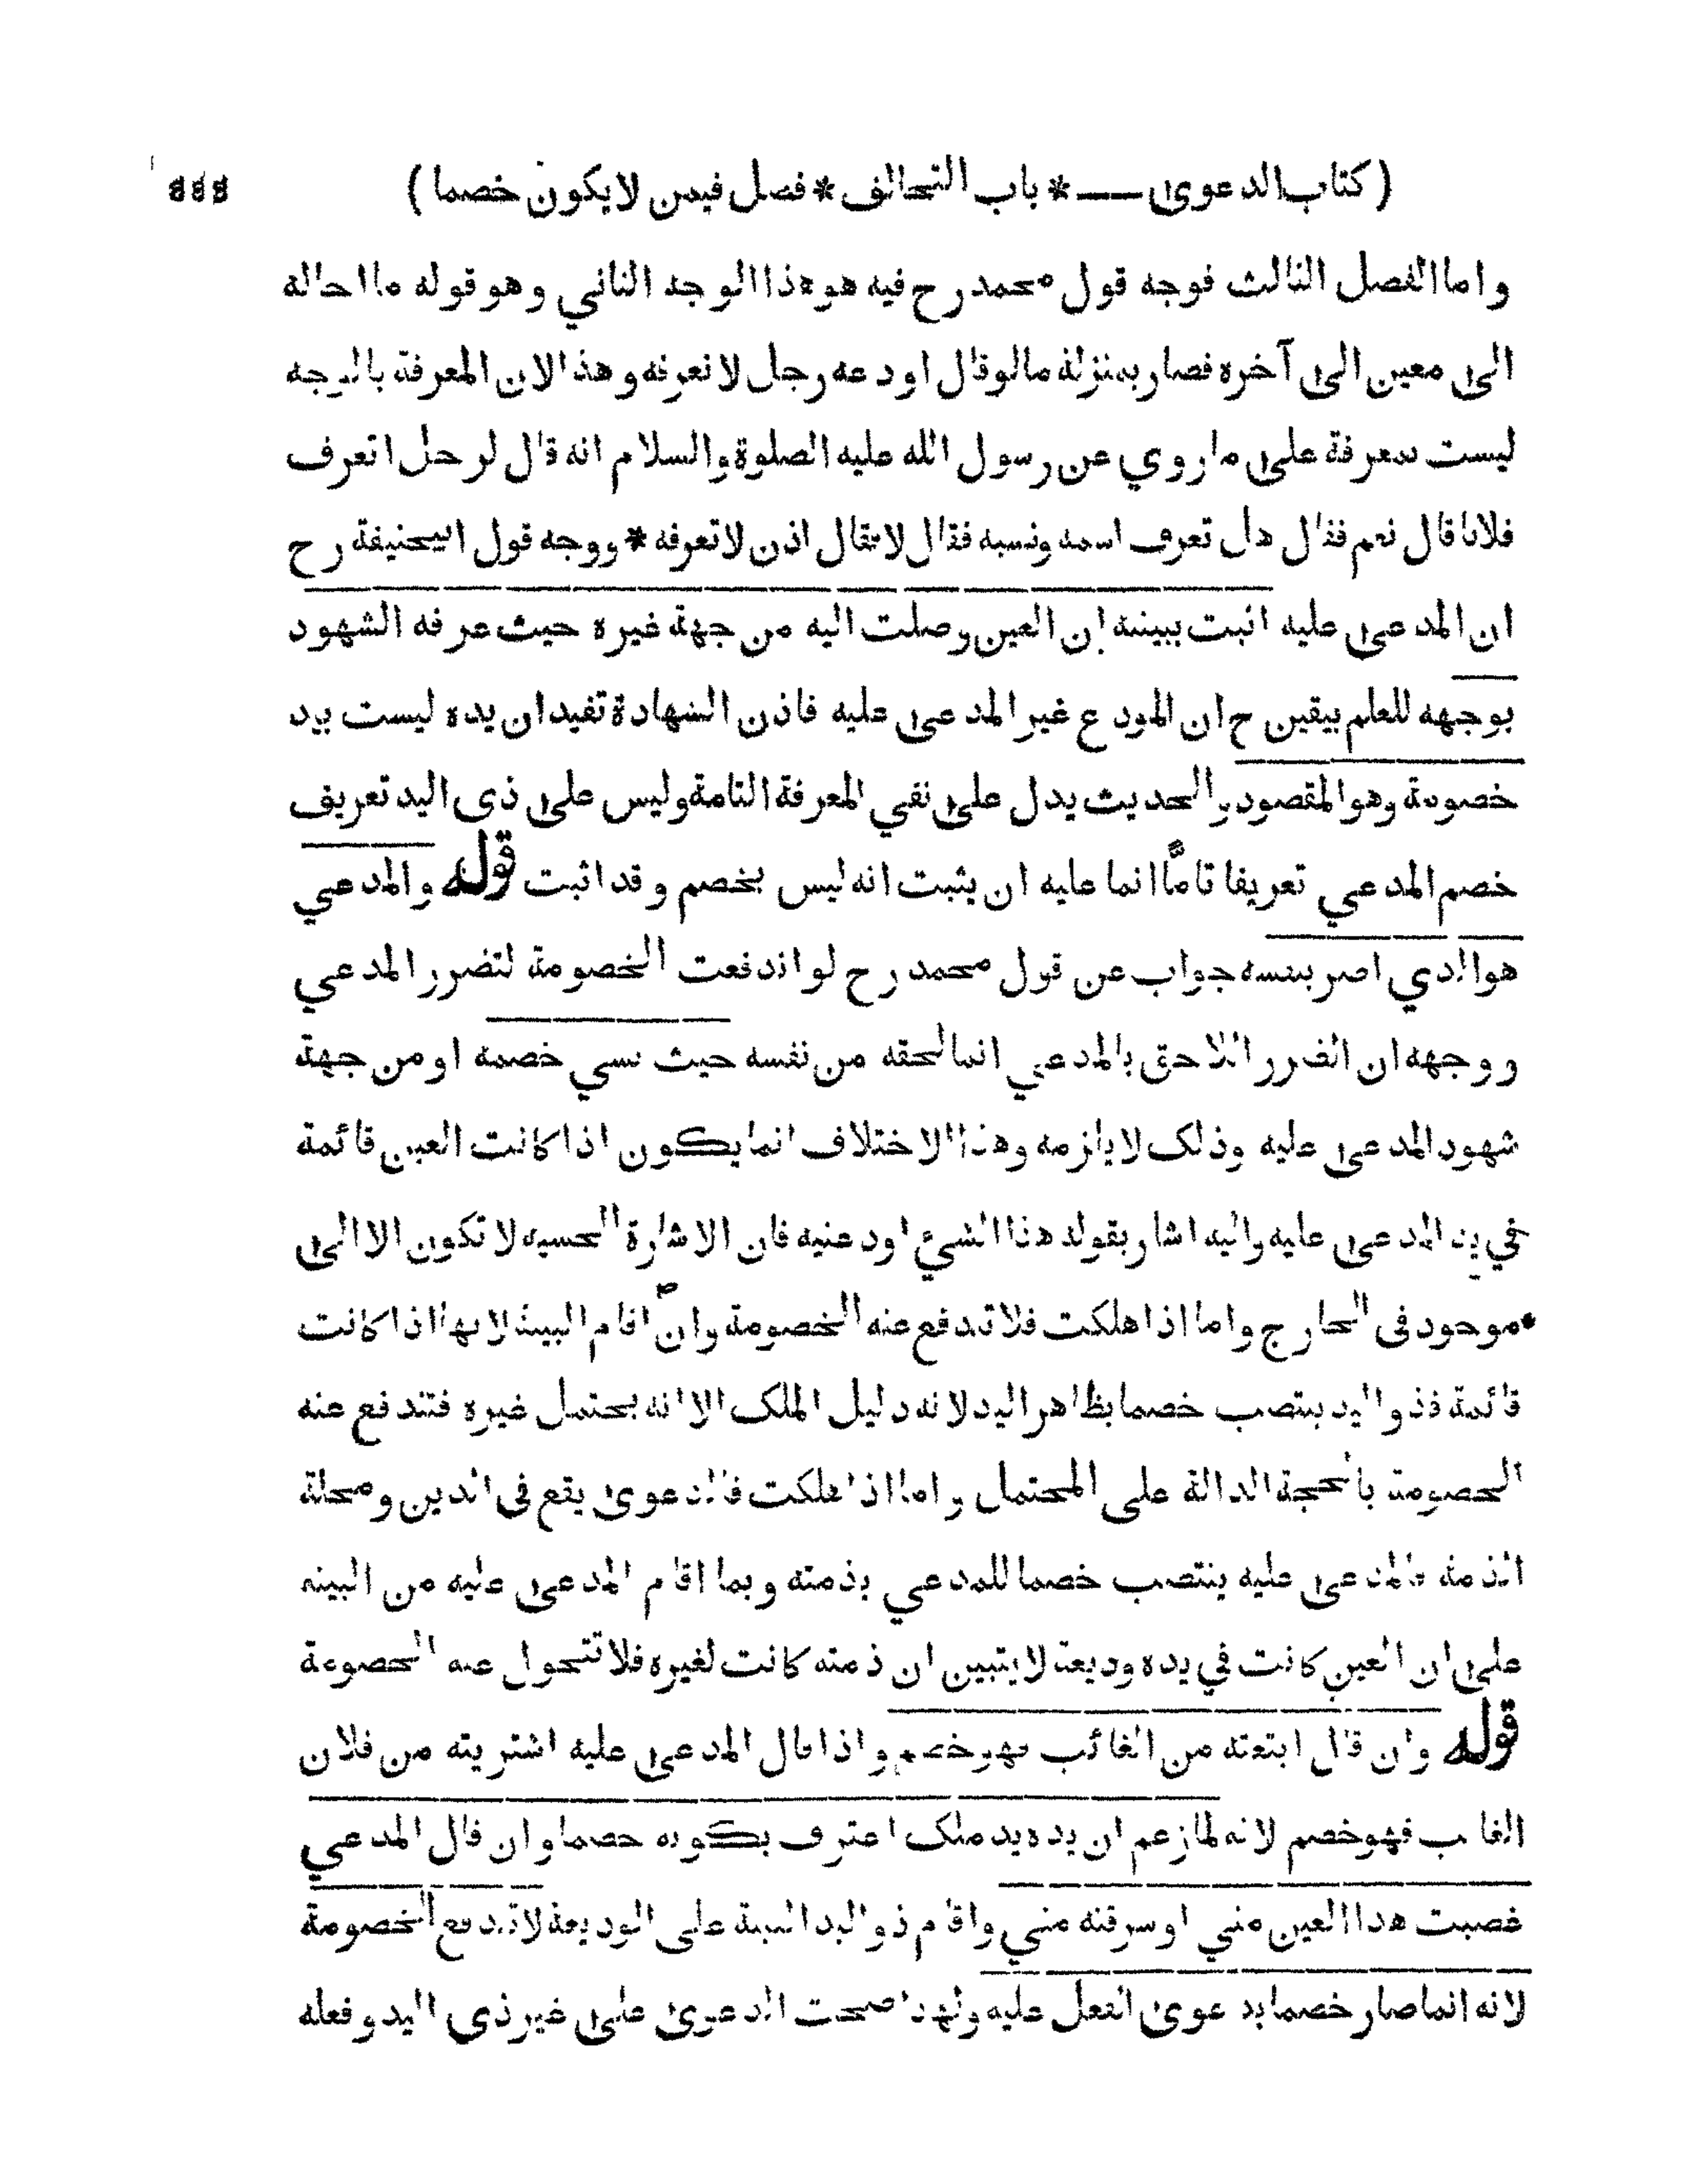 ( كتاب الدعوى — * باب التحالف * فصل فيمن لا يكون خصما )
واما الفصل الثالث فوجه قول محمد رح فيه هو هذا الوجه الثاني وهو قوله ما احاله
الى معين الى آخره فصار بمنزلة ما لو قال اودعه رجل لا نعرفه وهذا لان المعرفة بالوجه
ليست بمعرفة على ما روي عن رسول الله عليه الصلوة والسلام انه قال لرجل اتعرف
فلانا قال نعم فقال هل تعرف اسمه ونسبه فقال لا فقال اذن لا تعرفه * ووجه قول ابيحنيفة رح
ان المدعى عليه اثبت ببينته ان العين وصلت اليه من جهة غيره حيث عرفه الشهود
بوجهه للعلم بيقين ح ان المودع غير المدعى عليه فاذن الشهادة تفيد ان يده ليست بيد
خصومة وهو المقصود والحديث يدل على نفي المعرفة التامة وليس على ذى اليد تعريف
خصم المدعي تعريفا تامًّا انما عليه ان يثبت انه ليس بخصم وقد اثبت قوله والمدعي
هو الذي اضر بنفسه جواب عن قول محمد رح لو اندفعت الخصومة لتضرر المدعي
ووجهه ان الضرر اللاحق بالمدعي انما لحقه من نفسه حيث نسي خصمه او من جهة
شهود المدعى عليه وذلك لا يلزمه وهذا الاختلاف انما يكون اذا كانت العين قائمة
في يد المدعى عليه واليه اشار بقوله هذا الشيء اودعنيه فان الاشارة الحسيه لا تكون الا الى
موجود فى الخارج واما اذا هلكت فلا تندفع عنه الخصومة وان اقام البينة لانها اذا كانت
قائمة فذو اليد ينتصب خصما بظاهر اليد لانه دليل الملك الا انه يحتمل غيره فتندفع عنه
الخصومة بالحجة الدالة على المحتمل واما اذا هلكت فالدعوى يقع فى الدين ومحله
الذمة فالمدعى عليه ينتصب خصما للمدعي بذمته وبما اقام المدعى عليه من البينه
على ان العين كانت في يده وديعة لا يتبين ان ذمته كانت لغيره فلا تتحول عنه الخصومة
قوله وان قال ابتعته من الغائب فهو خصم واذا قال المدعى عليه اشتريته من فلان
الغائب فهو خصم لانه لما زعم ان يده يد ملك اعترف بكونه خصما وان قال المدعي
غصبت هذا العين مني او سرقته مني واقام ذو اليد البينة على الوديعة لا تندفع الخصومة
لانه انما صار خصما بدعوى الفعل عليه ولهذا صحت الدعوى على غير ذي اليد وفعله